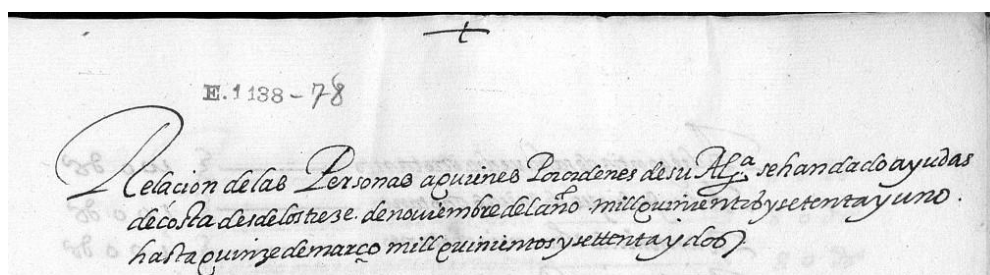 E. 1138-78
Relacion de las Personas a quienes Por ordenes de su Alᵃ se han dado ayudas
de costa desde los treze de noviembre del año mill quinientos y setenta y uno.
hasta quinze de março mill quinientos y settenta y dos